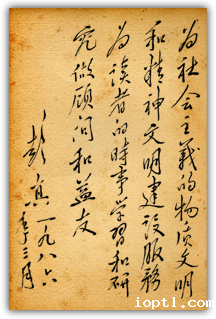 为社会主義的物质文明
和精神文明建设服務
为读者的時事学習和研
究做顾问和益友
彭真一九八六
年三月
ioptl.com